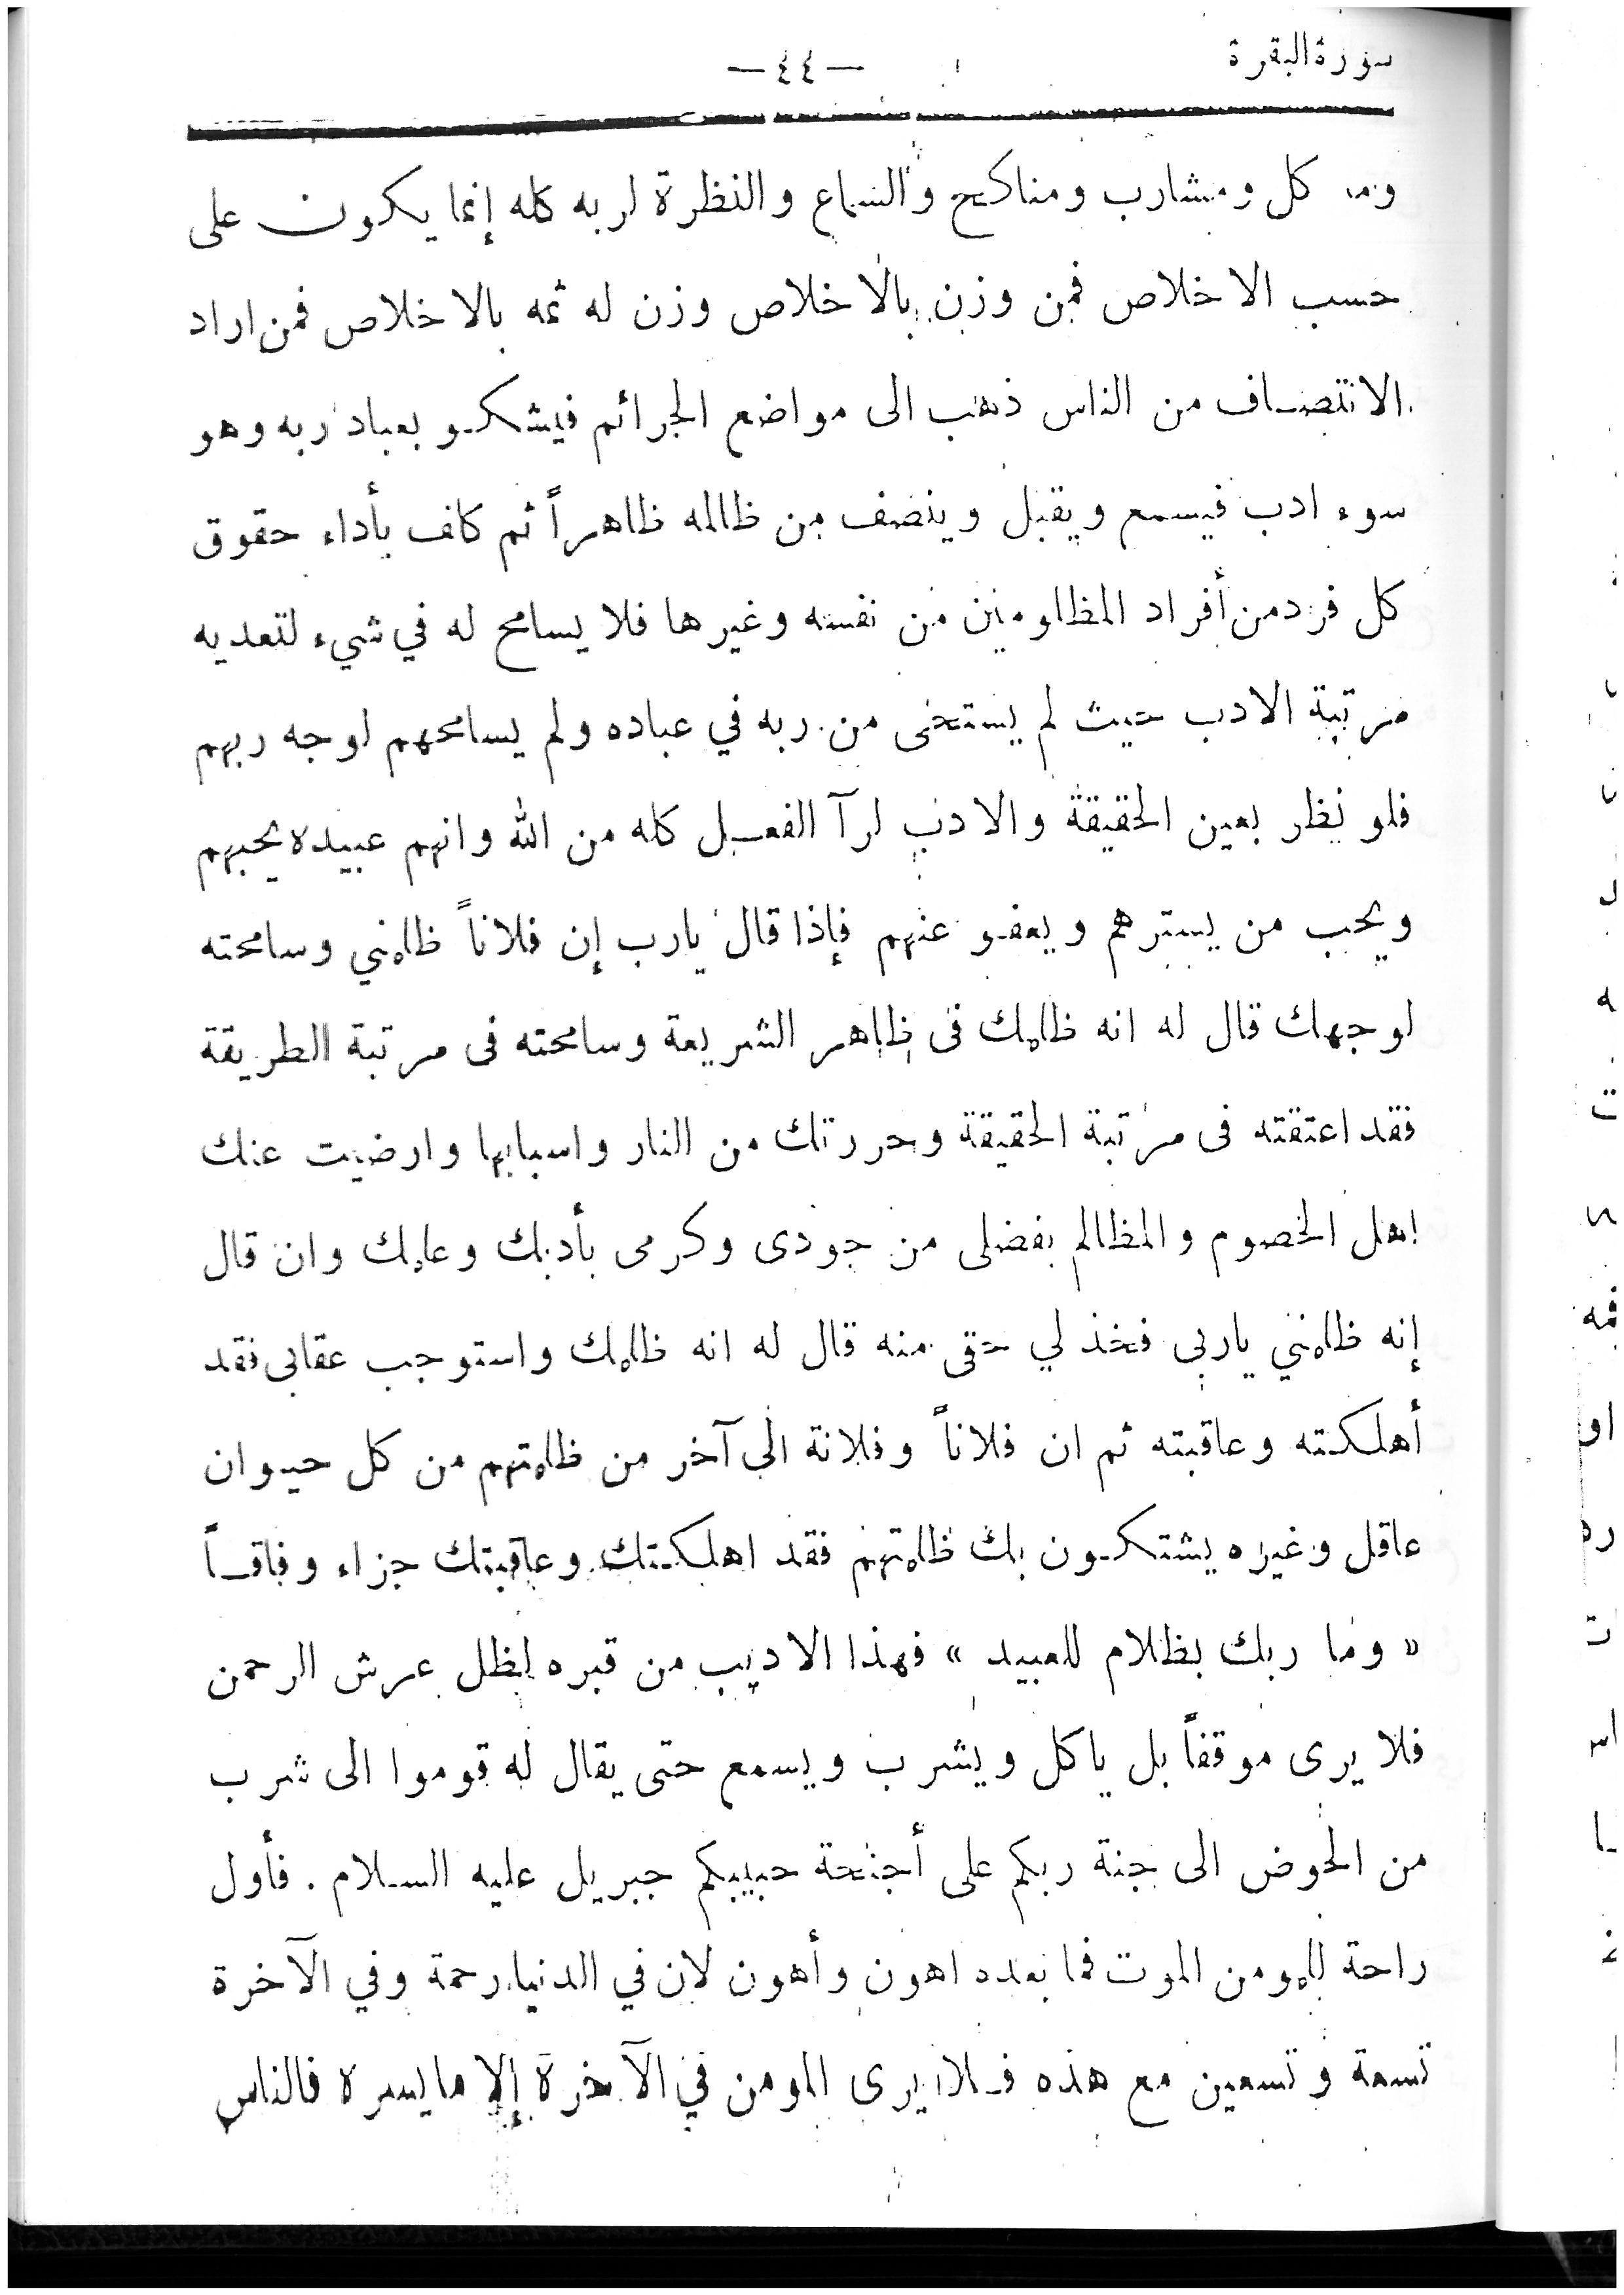 سورة البقرة
— ٤٤ —
كل ومشارب ومناكح والسماع والنظرة لربه كله إنما يكون على
حسب الاخلاص فمن وزن بالاخلاص وزن له ثمه بالاخلاص فمن اراد
الانتصاف من الناس ذهب الى مواضع الجرائم فيشكو بعباد ربه وهو
سوء ادب فيسمع ويقبل وينصف من ظالمه ظاهراً ثم كلف بأداء حقوق
كل فرد من أفراد المظلومين من نفسه وغيرها فلا يسامح له في شيء لتعديه
مرتبة الادب حيث لم يستحى من ربه في عباده ولم يسامحهم لوجه ربهم
فلو نظر بعين الحقيقة والادب لرآ الفعل كله من الله وانهم عبيده يحبهم
ويحب من يسترهم ويعفو عنهم فإذا قال يارب إن فلاناً ظلمني وسامحته
لوجهك قال له انه ظلمك فى ظاهر الشريعة وسامحته فى مرتبة الطريقة
فقد اعتقته فى مرتبة الحقيقة وحررتك من النار واسبابها وارضيت عنك
اهل الخصوم والمظالم بفضلى من جودى وكرمى بأدبك وعلمك وان قال
إنه ظلمني ياربى فخذ لي حقى منه قال له انه ظلمك واستوجب عقابى فقد
أهلكته وعاقبته ثم ان فلاناً وفلانة الى آخر من ظلمتهم من كل حيوان
عاقل وغيره يشتكون بك ظلمتهم فقد اهلكتك وعاقبتك جزاء وفاقاً
« وما ربك بظلام للعبيد » فهذا الاديب من قبره لظل عرش الرحمن
فلا يرى موقفاً بل ياكل ويشرب ويسمع حتى يقال له قوموا الى شرب
من الحوض الى جنة ربكم على أجنحة حبيبكم جبريل عليه السلام . فأول
راحة للمومن الموت فما بعده اهون وأهون لان في الدنيا رحمة وفي الآخرة
تسعة وتسعين مع هذه فلا يرى المومن في الآخرة إلا ما يسره فالناس